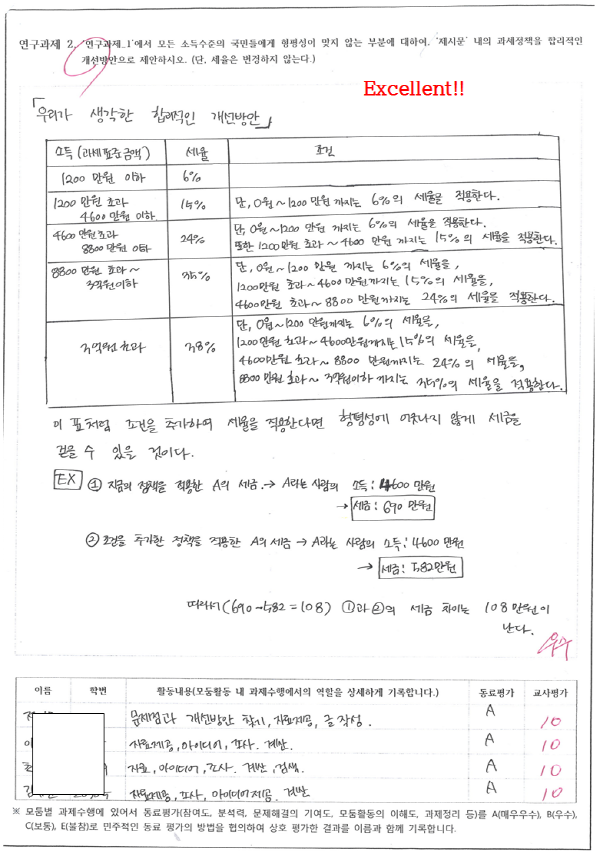 연구과제 2. '연구과제_1'에서 모든 소득수준의 국민들에게 형평성이 맞지 않는 부분에 대하여, '제시문' 내의 과세정책을 합리적인
개선방안으로 제안하시오. (단, 세율은 변경하지 않는다.)
Excellent!!
「우리가 생각한 합리적인 개선방안」
소득 (과세표준금액) 세율 조건
1200 만원 이하 6%
1200 만원 초과
4600만원 이하 15% 단, 0원~1200 만원 까지는 6%의 세율을 적용한다.
4600 만원 초과
8800 만원 이하 24% 단, 0원~1200 만원 까지는 6%의 세율을 적용한다.
또한 1200만원 초과 ~ 4600 만원 까지는 15%의 세율을 적용한다.
8800 만원 초과 ~
3억원이하 35% 단, 0원~1200 만원 까지는 6%의 세율을,
1200만원 초과~4600만원까지는 15%의 세율을,
4600만원 초과~8800 만원까지는 24%의 세율을 적용한다.
3억원 초과 38% 단, 0원~1200 만원까지는 6%의 세율을,
1200만원 초과~4600만원까지는 15%의 세율을,
4600만원 초과~8800 만원까지는 24%의 세율을,
8800 만원 초과~3억원이하 까지는 35%의 세율을 적용한다.
이 표처럼 조건을 추가하여 세율을 적용한다면 형평성에 어긋나지 않게 세금을
걷을 수 있을 것이다.
EX ① 지금의 정책을 적용한 A의 세금. → A라는 사람의 소득: 4600 만원
→ 세금: 690 만원
② 조건을 추가한 정책을 적용한 A의 세금 → A라는 사람의 소득: 4600 만원
→ 세금: 582만원
따라서 (690-582=108) ①과 ②의 세금 차이는 108 만원이
난다.
우수
이름 학번 활동내용(모둠활동 내 과제수행에서의 역할을 상세하게 기록합니다.) 동료평가 교사평가
문제점과 개선방안 찾기, 자료제공, 글 작성. A 10
자료제공, 아이디어, 조사. 계산. A 10
자료, 아이디어, 조사. 계산, 검색 A 10
자료제공, 조사, 아이디어제공. 계산 A 10
※ 모둠별 과제수행에 있어서 동료평가(참여도, 분석력, 문제해결의 기여도, 모둠활동의 이해도, 과제정리 등)를 A(매우우수), B(우수),
C(보통), E(불참)로 민주적인 동료 평가의 방법을 협의하여 상호 평가한 결과를 이름과 함께 기록합니다.